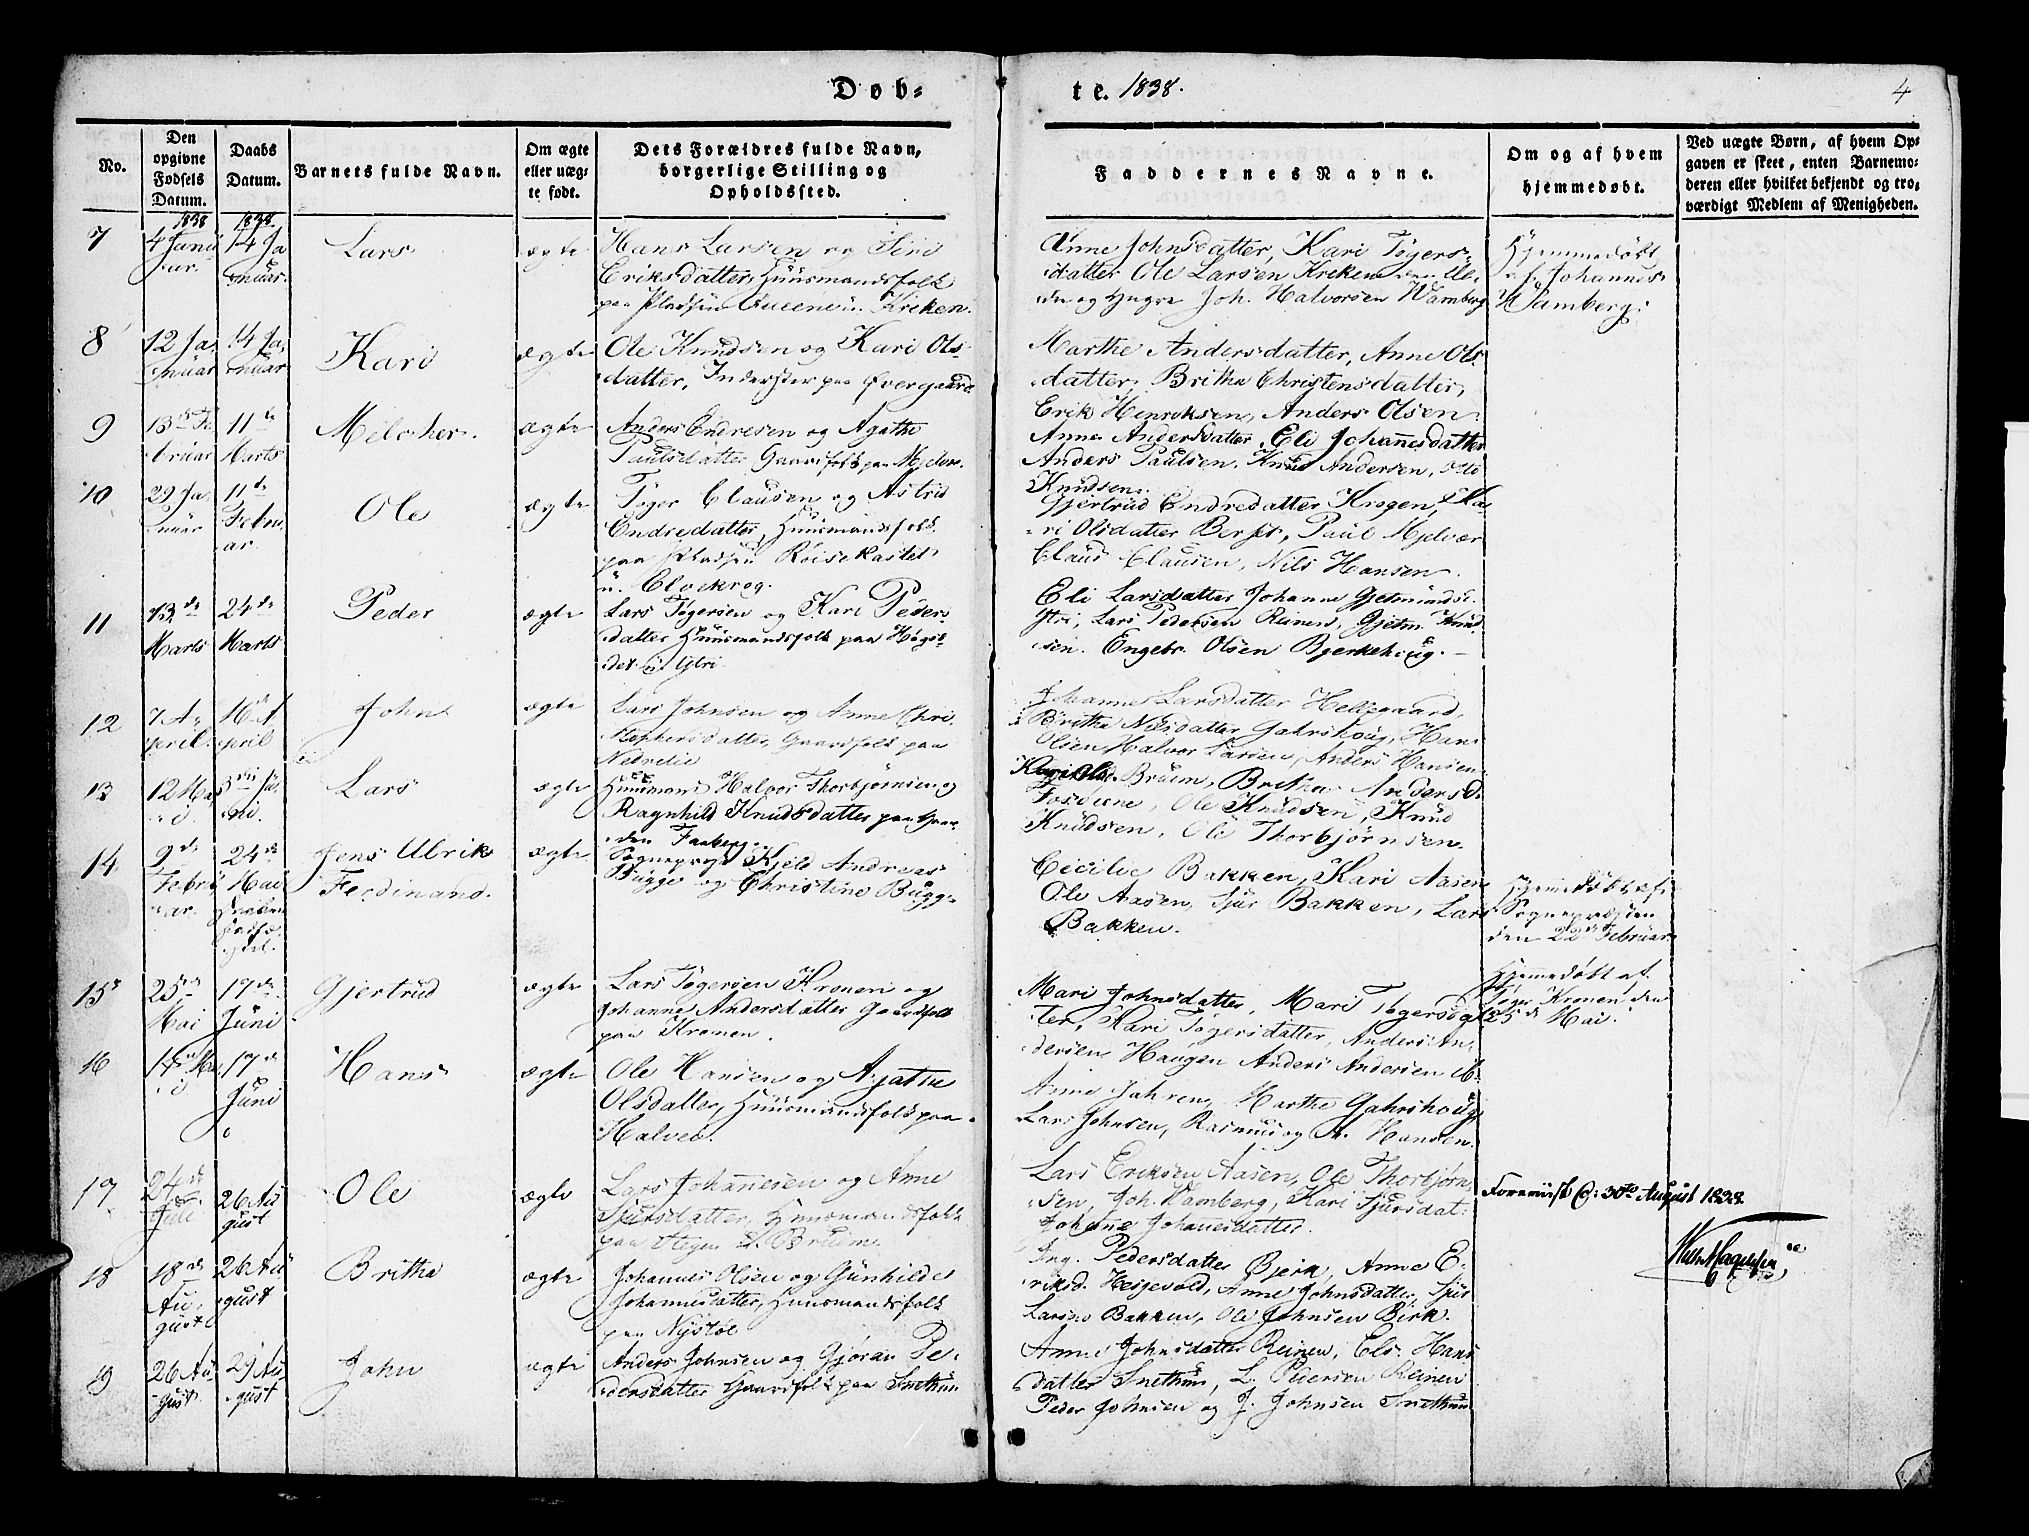 Døb-
te. 1838.
4
No.
Den opgivne Fødsels Datum.
Daabs Datum.
Barnets fulde Navn.
Om ægte eller uægte født.
Dets Forældres fulde Navn, borgerlige Stilling og Opholdssted.
Faddernes Navne.
Om og af hvem hjemmedøbt.
Ved uægte Børn, af hvem Opgaven er skeet, enten Barnemoderen eller hvilket bekjendt og troværdigt Medlem af Menigheden.
1838
1838.
7
4 Janu
ar.
14 Ja
nuar.
Lars
ægte
Hans Larsen og Siri
Eriksdatter, Huusmandsfolk
paa Pladsen u. Kreken.
Anne Johnsdatter, Kari Tøgers-
datter Ole Larsen Kreken
og Joh. Halvorsen Wamberg
Hjemmedøbt
af Johannes
Wamberg.
8
12 Ja
nuar
14 Ja
nuar
Kari
ægte
Ole Knudsen og Kari Ols-
datter, Inderster paa Øvergaard
Marthe Andersdatter, Anne Ols-
datter, Britha Christensdatter,
Erik Henriksen, Anders Olsen.
9
13de Fe
bruar
11te
Marts
Melcher.
ægte
Anders Endresen og Agathe
Paulsdatter Gaardfolk paa Mjelvær.
Anne Andersdatter, Eli Johannesdatter
Anders Paulsen, Knud Andersen, Ole
Knudsen.
10
29 Ja
nuar
11te
Febru
ar.
Ole
ægte
Tøger Clausen og Astrid
Endredatter, Huusmandsfolk
paa Pladsen Røisekastet
u. Elvekrog.
Gjertrud Endredatter Krogen, Ka-
ri Olsdatter Berset, Paul Mjelvær
Claus Clausen, Nils Hansen.
11
13de
Marts
24de
Marts
Peder
ægte
Lars Tøgersen og Kari Peders
datter Huusmandsfolk paa Høgst
det u. Ytri
Eli Larsdatter Johanne Gjetmunds-
Ytri, Lars Pedersen Reinen, Gjetm. Knud
sen. Engebr. Olsen Bjerkehoug.
12
7 A-
pril
16 A
pril
John
ægte
Lars Johnsen og Anne Chri
stophersdatter, Gaardfolk paa
Nedrelie
Johanne Larsdatter Hellegaard,
Britha Nilsdatter Gahrshoug, Hans
Olsen Halvor Larsen, Anders Hansen
13
12 Ma
i.
3die Ju
ni.
Lars
ægte
Huusmand Halvor Thorbjørnsen og
Ragnhild Knudsdatter paa Gaar
den Faaberg.
Kari Olsd. Bruem, Britha Andersd.
Fosøiene, Ole Knudsen, Knud
Knudsen, Ole Thorbjørnsen.
14
9de
Febru
ar.
24de
Mai
Jens Ulrik
Ferdinand.
ægte
Sogneprest Kjeld Andreas
Bugge og Christine Bugge
Cecilie Bakken, Kari Aasen
Ole Aasen, Sjur Bakken, Lars
Bakken.
Hjemmedøbt af
Sognepræsten
den 22de Februar
15
25de
Mai
17de
Juni
Gjertrud
ægte
Lars Tøgersen Kronen og
Johanne Andersdatter Gaardfolk
paa Kronen.
Mari Johnsdatter, Mari Tøgersdat
ter, Kari Tøgersdatter, Anders An-
dersen Haugen Anders Andersen
Hjemedøbt af
Tøger Kronen den
25de Mai.
16
Mai
17de
Juni
Hans
ægte
Ole Hansen og Agathe
Olsdatter, Huusmandsfolk paa
Halveb.
Anne Jahren, Marthe Gahrshoug
Lars Johnsen, Rasmus og A. Hansen.
17
24de
26 Au
gust
Ole
ægte
Lars Johannesen og Anne
Sjursdatter, Huusmandsfolk
paa Stegen u. Bruem.
Lars Eriksen Aasen, Ole Thorbjørn
sen, Joh. Wamberg, Kari Sjursdat.
Johanne Johanesdatter.
Foreviist d: 30te August 1838
18
18de
Au-
gust
26 Au
gust
Britha
ægte
Johannes Olsen og Gunhilde
Johannesdatter, Huusmandsfolk
paa Nystøl
Ing. Pedersdatter Bjerk, Anne E-
riksd. Heigevold, Anne Johnsdatter, Sjur
Larsen Bakken, Ole Johnsen Birk.
19
26 Au
gust
29 Au
gust
John
ægte
Anders Johnsen og Gjøran Pe-
dersdatter Gaardfolk paa Snethun
Anne Johnsdatter Reinen, Els. Hans
datter Snethun, L. Pedersen Reinen
Peder Johnsen og J. Johnsen Snethun